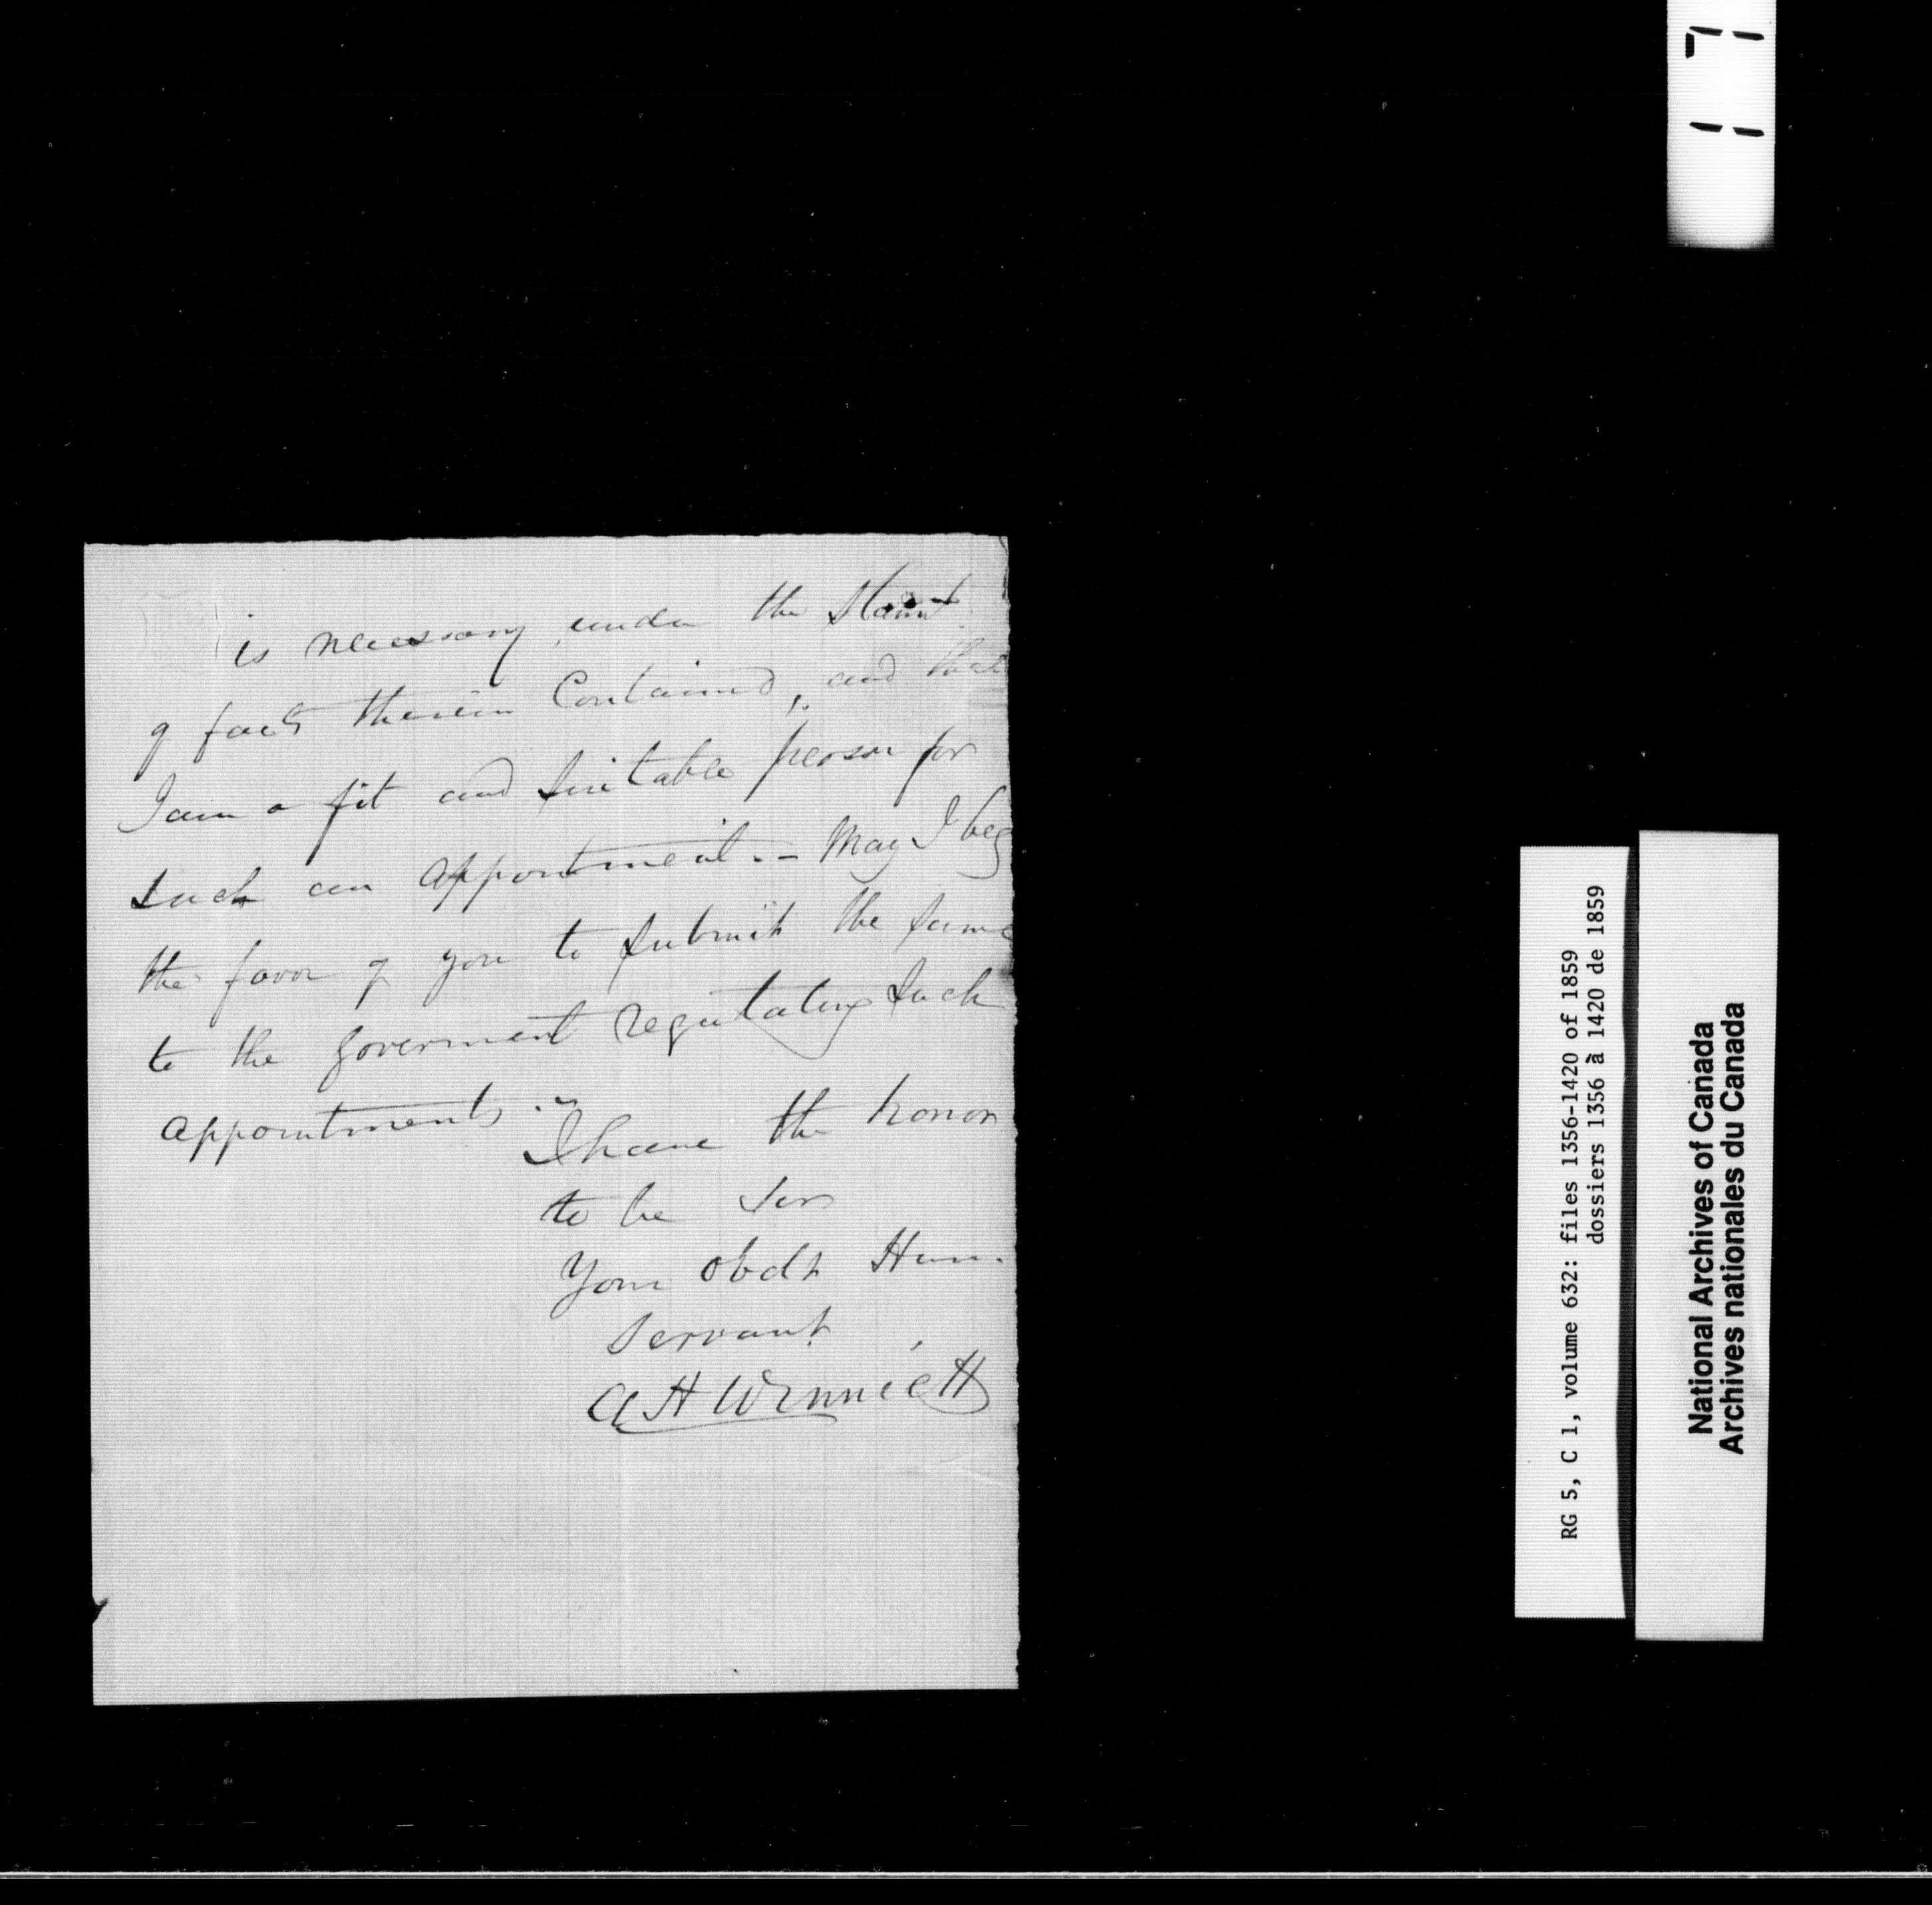 is necessary under the Stamt
of facts therein Contained, and that
I am a fit and suitable person for
such an appointment. - May I beg
the favor of you to submit the same
to the goverment regulating such
appointments.~
I have the honor
to be Sir
Your obdt Hum.
Servant
A H Winniett
RG 5, C 1, volume 632: files 1356-1420 of 1859
dossiers 1356 à 1420 de 1859
National Archives of Canada
Archives nationales du Canada